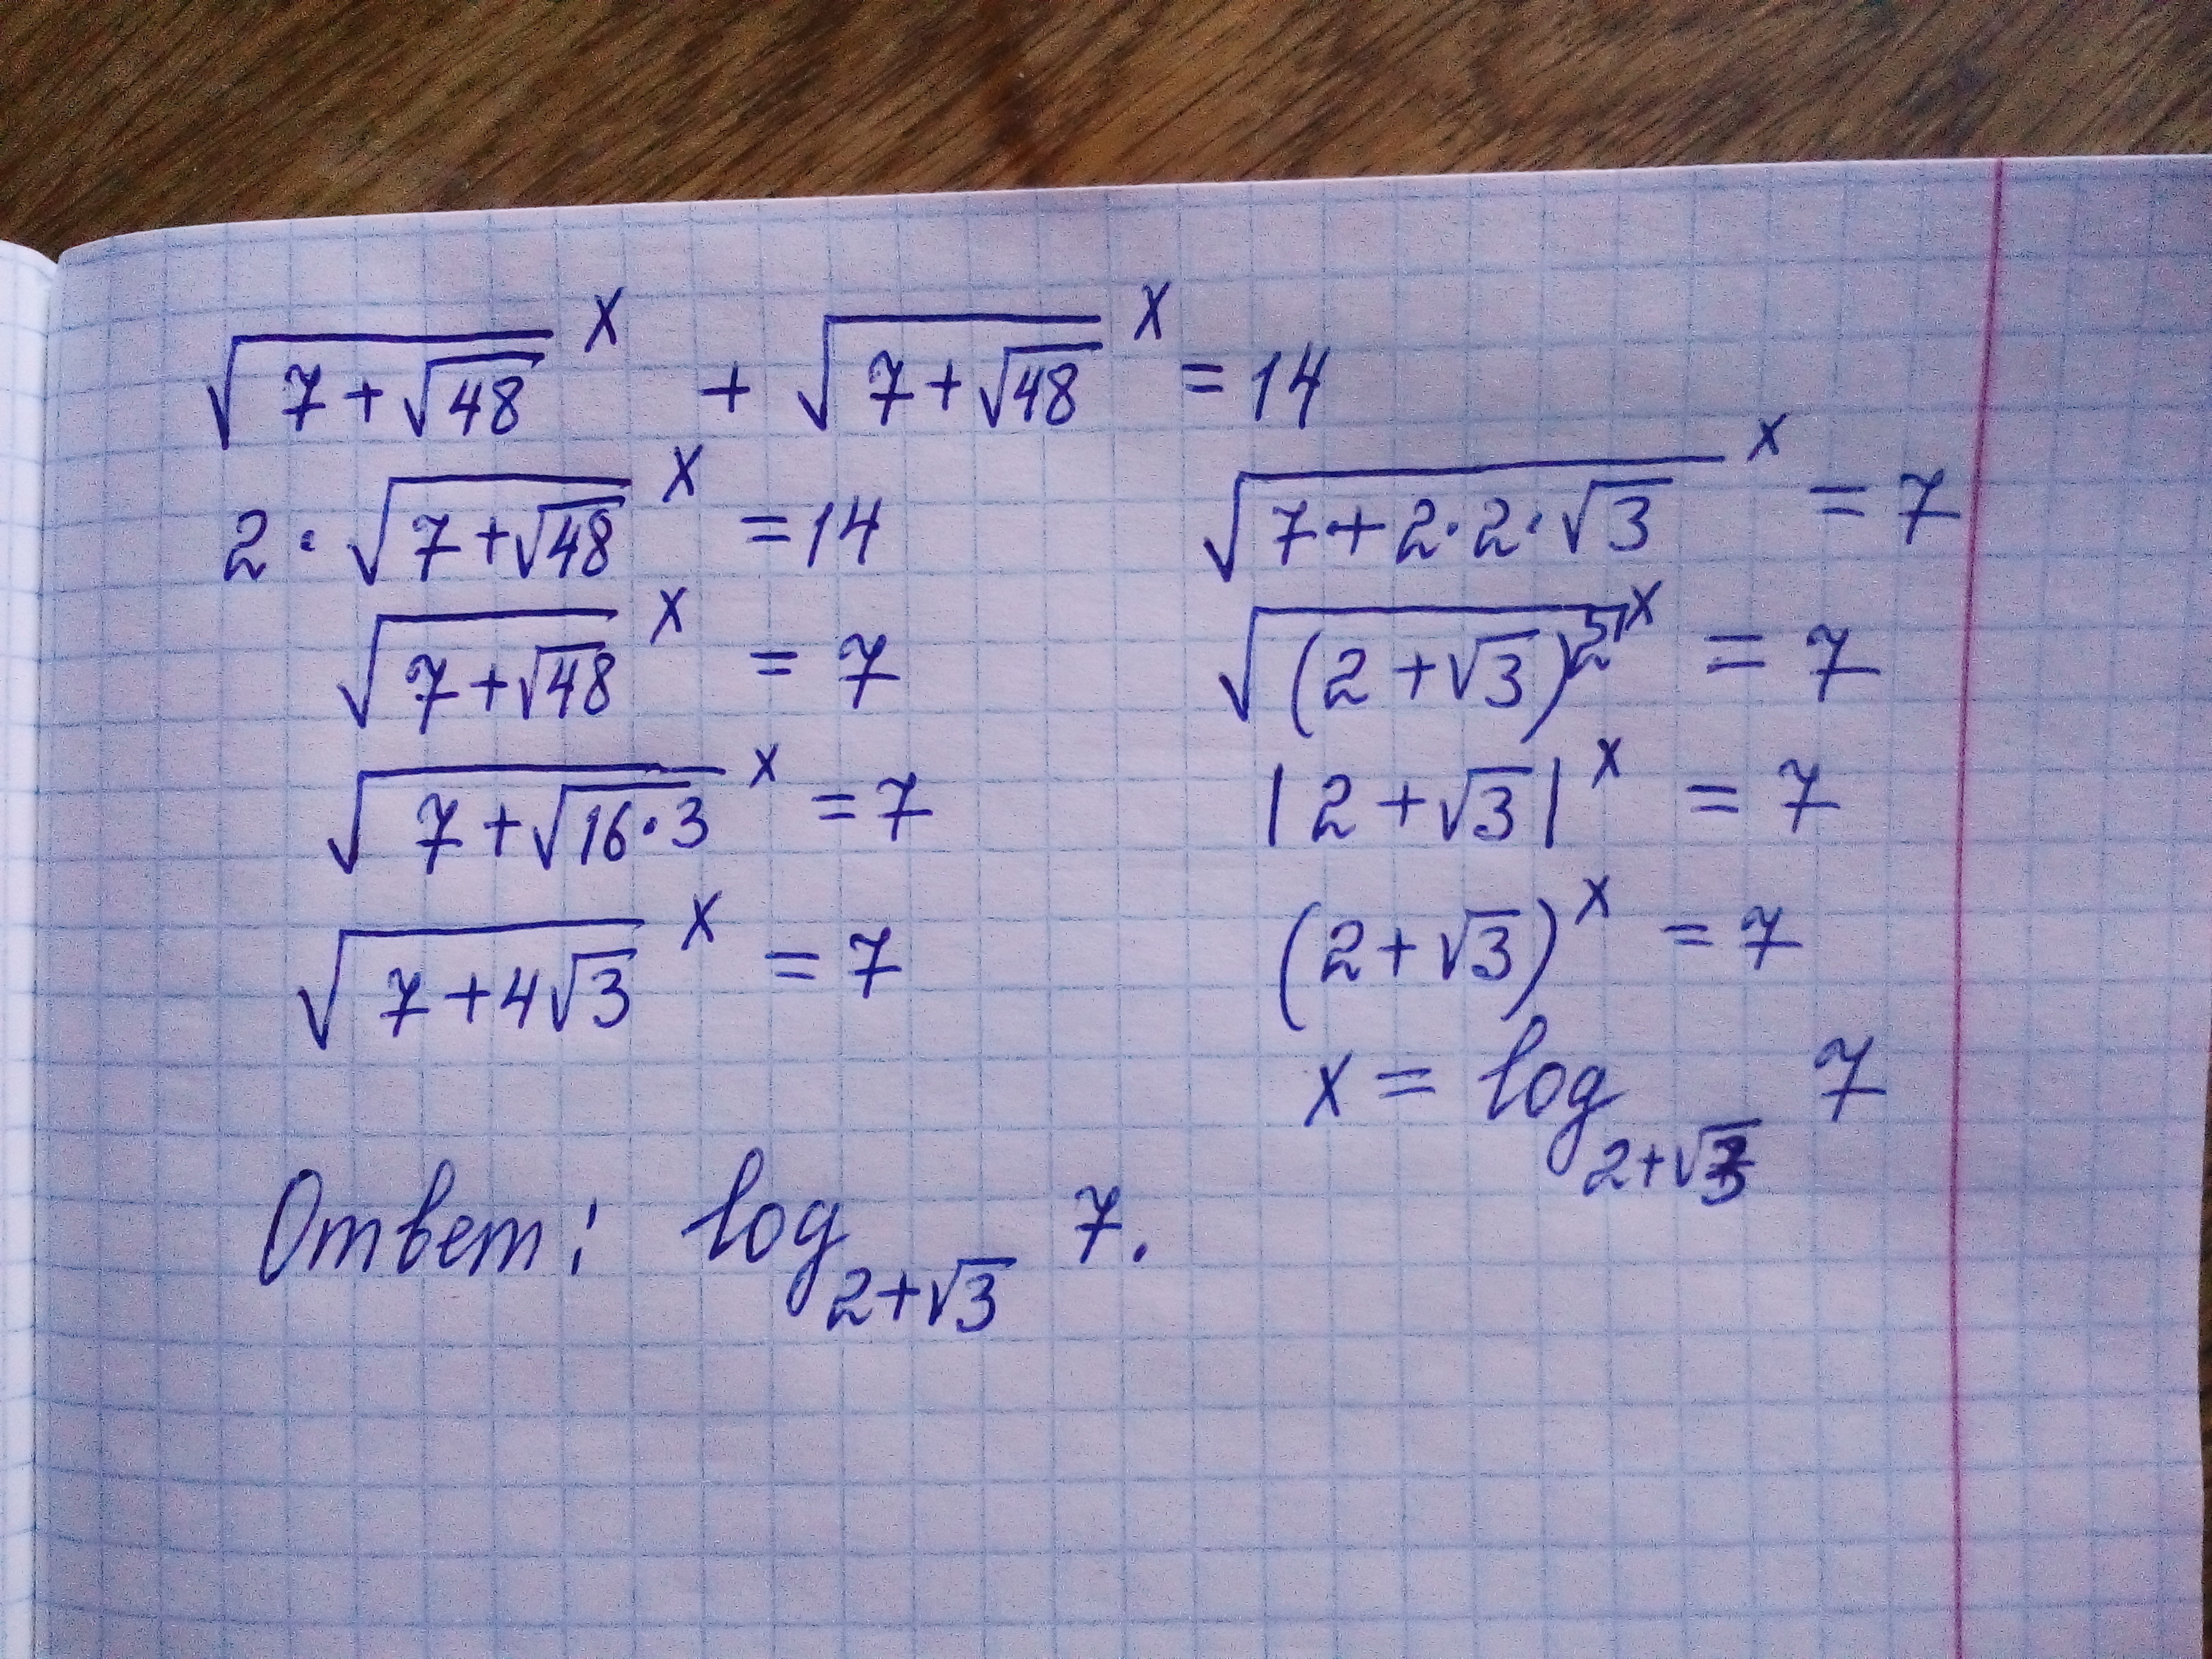 √(7+√48)^x + √(7+√48)^x = 14
2·√(7+√48)^x = 14
√(7+√48)^x = 7
√(7+√(16·3))^x = 7
√(7+4√3)^x = 7
√(7+2·2·√3)^x = 7
√((2+√3)^2)^x = 7
|2+√3|^x = 7
(2+√3)^x = 7
x = log_{2+√3} 7
Ответ: log_{2+√3} 7.